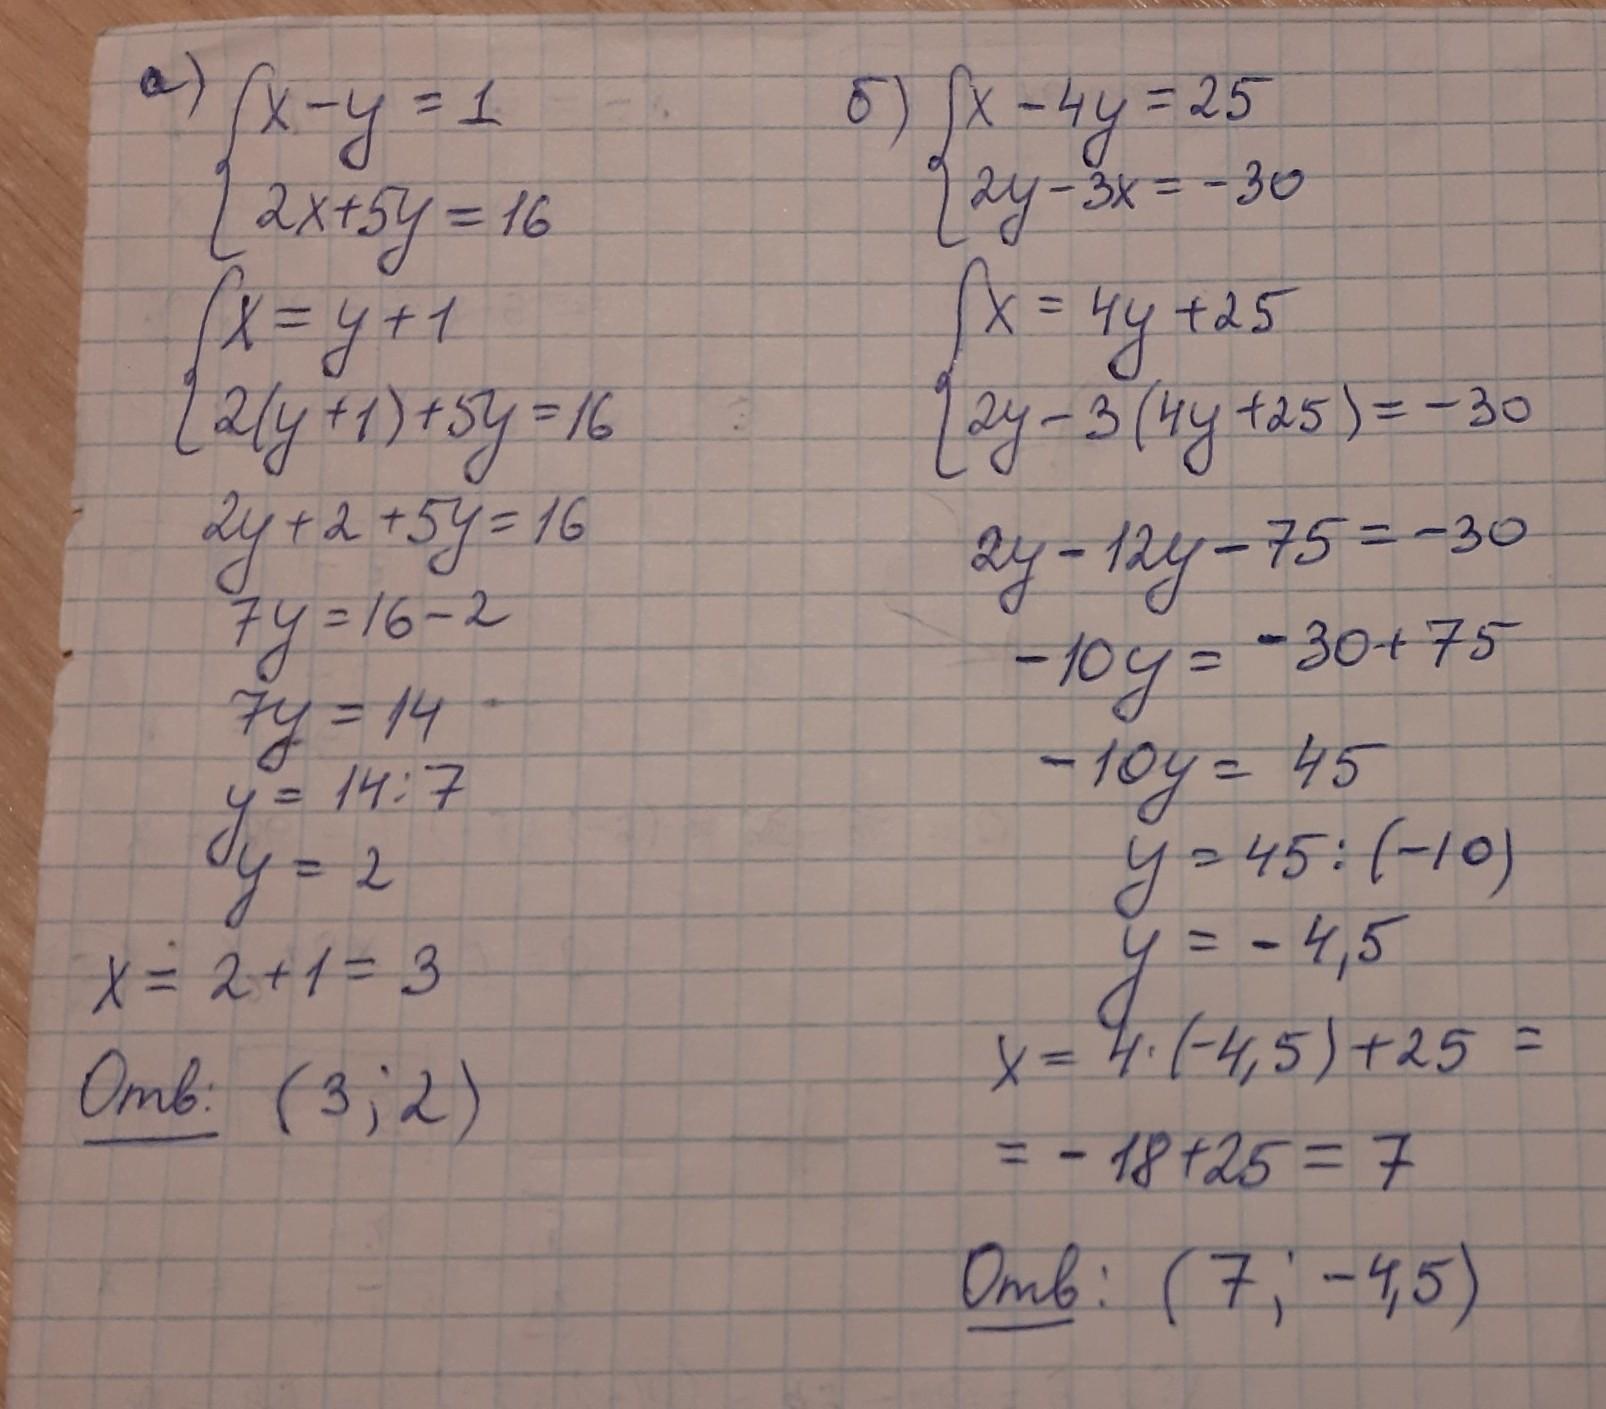 а) x - y = 1
2x+5y = 16
x = y + 1
2(y+1)+5y=16
2y+2+5y=16
7y=16-2
7y = 14
y = 14:7
y = 2
x = 2+1 = 3
Отв: (3; 2)
б) x - 4y = 25
2y - 3x = -30
x = 4y +25
2y - 3(4y+25) = -30
2y - 12y - 75 = -30
-10y = -30+75
-10y = 45
y = 45:(-10)
y = -4,5
x = 4·(-4,5)+25 =
= -18+25 = 7
Отв: (7; -4,5)